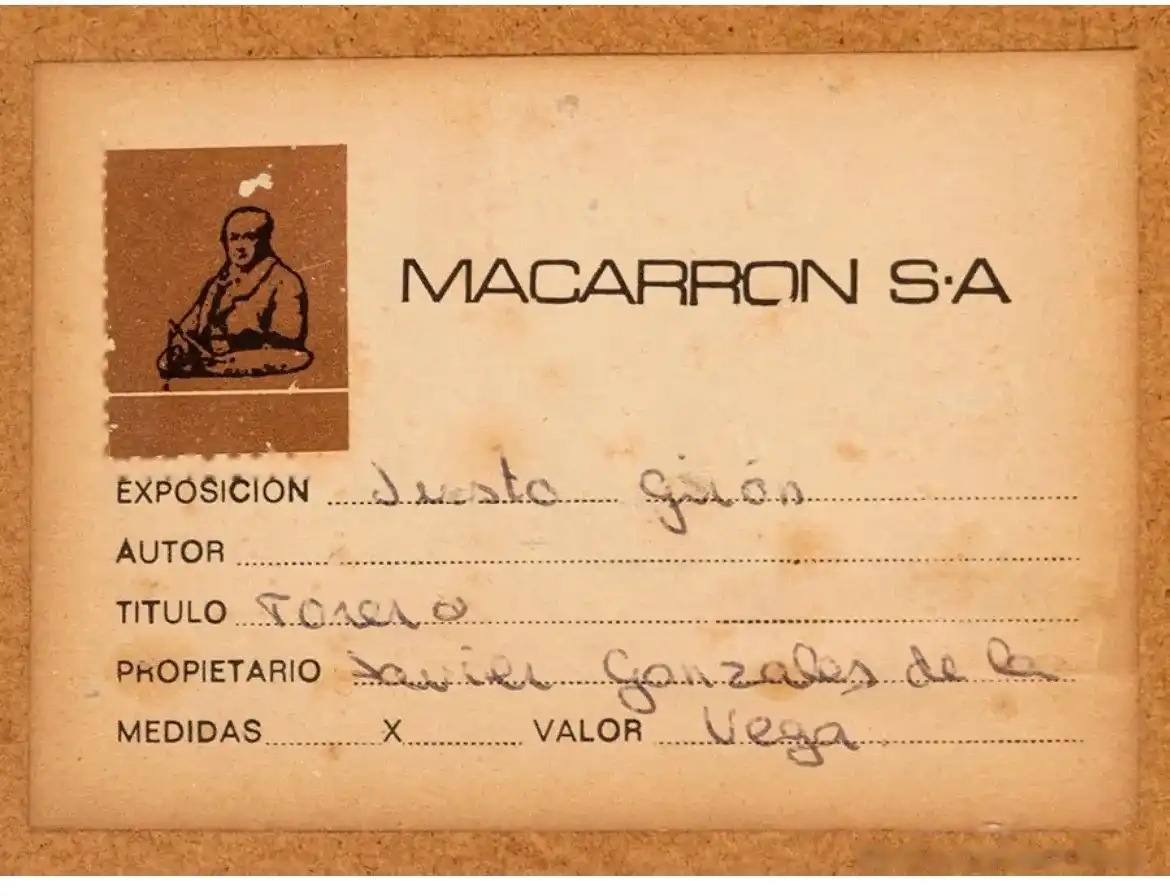 MACARRON S·A
EXPOSICIÓN Justo Girón
AUTOR
TITULO Torero
PROPIETARIO Javier Gonzales de la
MEDIDAS X VALOR Vega